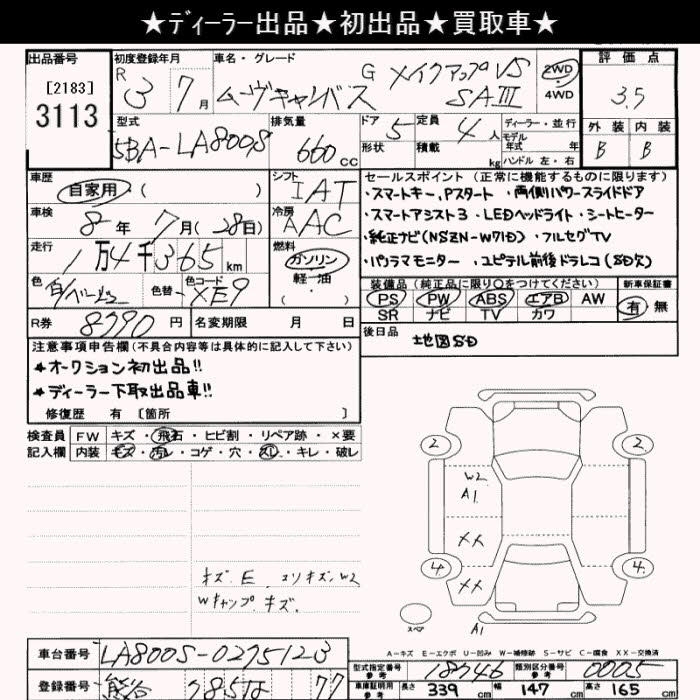 ★ディーラー出品★初出品★買取車★
出品番号
[2183]
3113
初度登録年月
R 3 7月
車名・グレード
G メイクアップVS
ムーヴキャンバス SAⅢ
2WD
・
4WD
評価点
3.5
外装 内装
B B
型式
5BA-LA800S
排気量
660cc
ドア 5
形状
定員 4人
積載 kg
ディーラー・並行
モデル
年式 年
ハンドル 左・右
車歴
自家用 ( )
シフト
IAT
車検
8年 7月(28日)
冷房
AAC
走行
1万4千365km
燃料
ガソリン
・
軽・油
・( )
色
白/ベージュ
色替
色コード
XE9
R券 8790円
名変期限 月 日
セールスポイント(正常に機能するものに限ります)
・スマートキー,Pスタート ・両側パワースライドドア
・スマートアシスト3 ・LEDヘッドライト・シートヒーター
・純正ナビ(NSZN-W71D) ・フルセグTV
・パノラマモニター ・ユピテル前後ドラレコ(SD欠)
装備品(純正品に限り○をつけてください)
PS PW ABS エアB AW
SR ナビ TV カワ
新車保証書
有・無
後日品 地図SD
注意事項申告欄(不具合内容等は具体的に記入して下さい)
★オークション初出品!!
★ディーラー下取出品車!!
修復歴 有 [箇所 ]
検査員
記入欄
FW キズ・飛石・ヒビ割・リペア跡・×要
内装 キズ・汚レ・コゲ・穴・スレ・キレ・破レ
キズ.E. スリキズ.W2
Wキャップ.キズ.
2
2
W2
A1
XX
4
4
XX
スペア
A1
A-キズ E-エクボ U-凹み W-補修跡 S-サビ C-腐食 XX-交換済
車台番号 LA800S-0275123
登録番号 熊谷 77
型式指定番号
参考
18746
類別区分番号
参考
0005
車庫証明用
参考
長さ 339cm 幅 147cm 高さ 165cm